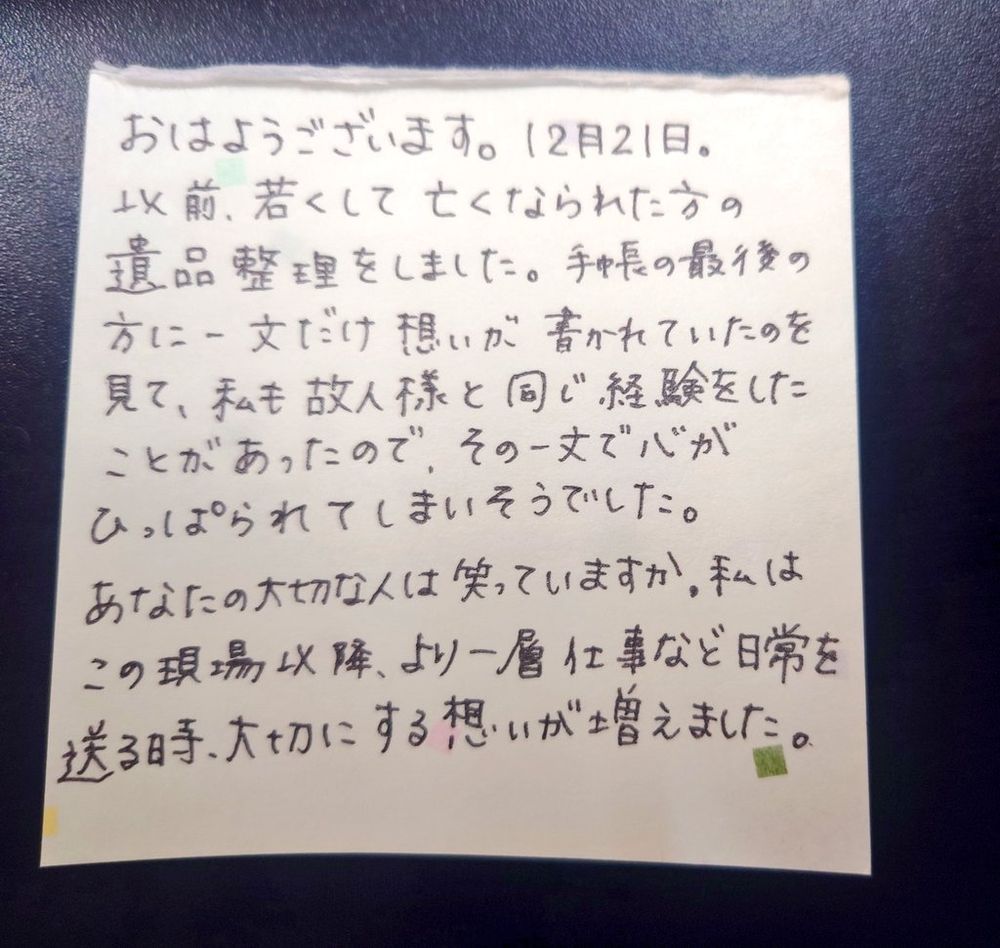 おはようございます。12月21日。
以前、若くして亡くなられた方の
遺品整理をしました。手帳の最後の
方に一文だけ想いが書かれていたのを
見て、私も故人様と同じ経験をした
ことがあったので、その一文で心が
ひっぱられてしまいそうでした。
あなたの大切な人は笑っていますか。私は
この現場以降、より一層仕事など日常を
送る時、大切にする想いが増えました。